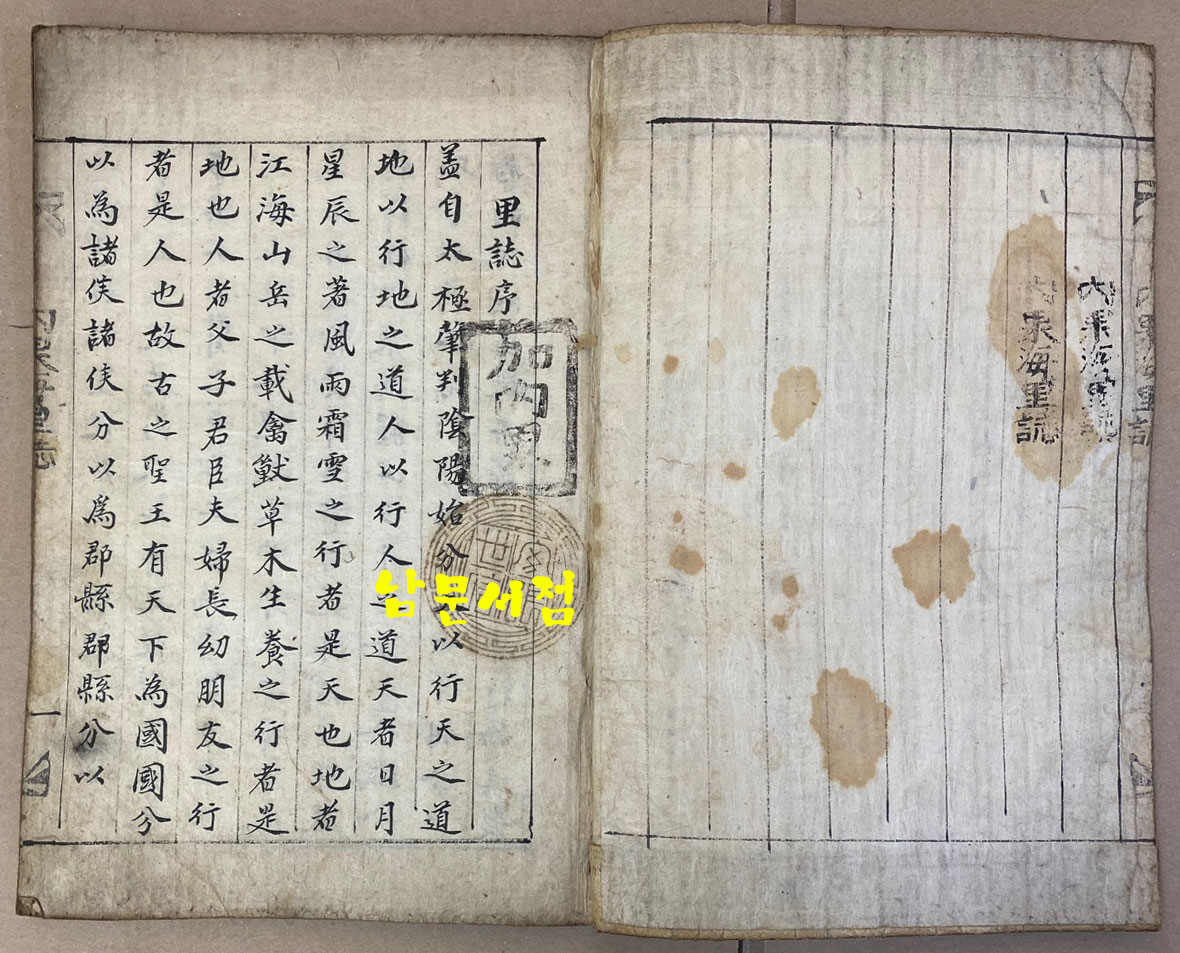 海里誌
海里誌
里誌序
加內
盖自太極肇判陰陽始分以行天之道
地以行地之道人以行人之道天者日月
星辰之著風雨霜雪之行者是天也地者
江海山岳之載禽獸草木生養之行者是
地也人者父子君臣夫婦長幼朋友之行
者是人也故古之聖王有天下為國國分
以為諸侯諸侯分以爲郡縣郡縣分以
一
남문서점